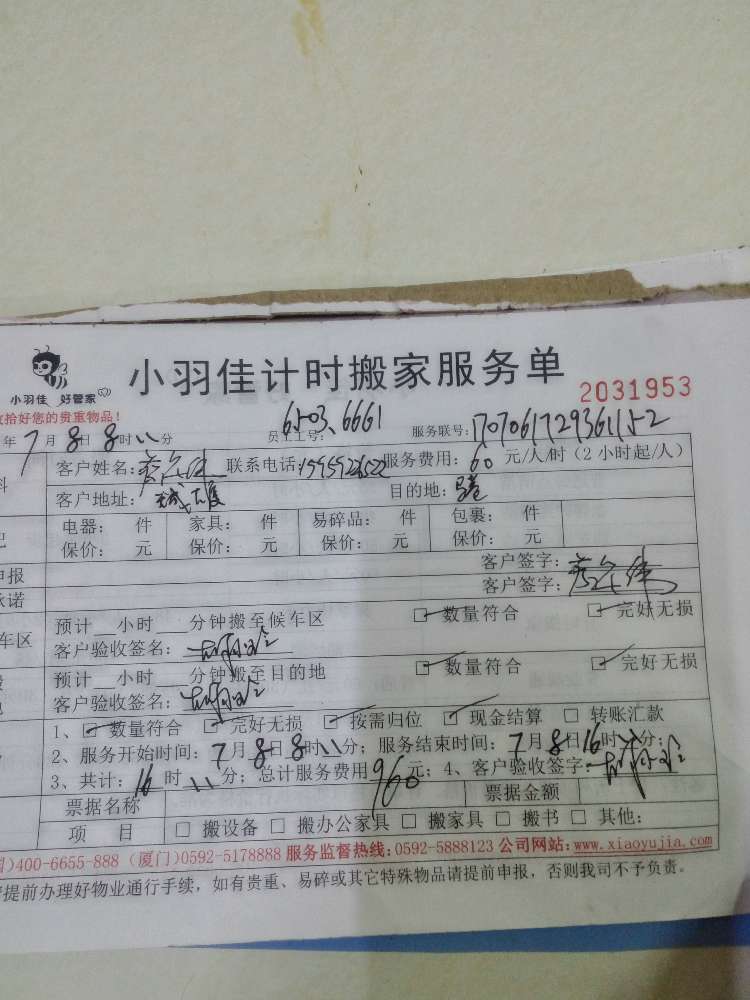 小羽佳 好管家
小羽佳计时搬家服务单
2031953
收拾好您的贵重物品!
年7月8日8时\\分 员工工号: 6503、6661 服务联号:
客户姓名: 联系电话: 服务费用: 60 元/人/时(2小时起/人)
客户地址: 目的地:
电器: 件 家具: 件 易碎品: 件 包裹: 件
保价: 元 保价: 元 保价: 元 保价: 元
申报 客户签字:
承诺 客户签字:
预计 小时 分钟搬至候车区 ☑数量符合 ☑完好无损
车区 客户验收签名:
预计 小时 分钟搬至目的地 ☑数量符合 ☑完好无损
客户验收签名:
1、☑数量符合 ☑完好无损 ☑按需归位 ☑现金结算 □转账汇款
2、服务开始时间: 7月8日8时\\分; 服务结束时间: 7月8日16时\\分;
3、共计: 16时\\分; 总计服务费用960元; 4、客户验收签字:
票据名称 票据金额
项 目 □搬设备 □搬办公家具 □搬家具 □搬书 □其他:
)400-6655-888 (厦门)0592-5178888 服务监督热线:0592-5888123 公司网站:www.xiaoyujia.com
提前办理好物业通行手续,如有贵重、易碎或其它特殊物品请提前申报,否则我司不予负责。